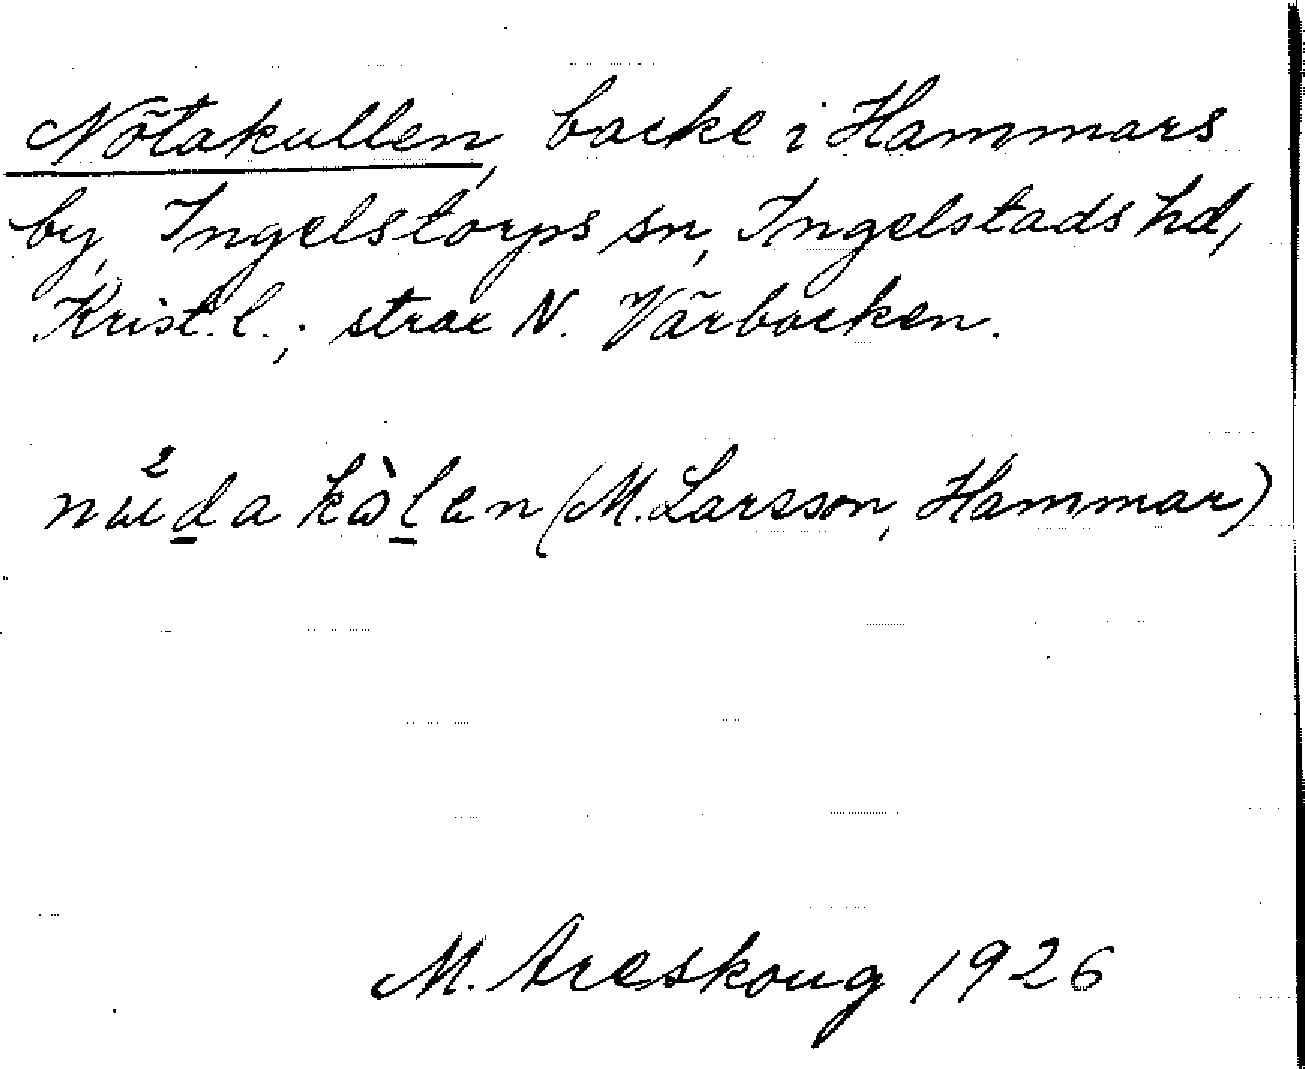 Nötakullen, backe i Hammars
by, Ingelstorps sn, Ingelstads hd,
Krist. l.; strax N. Vårbacken.
(M. Larsson, Hammar)
M. Areskoug 1926